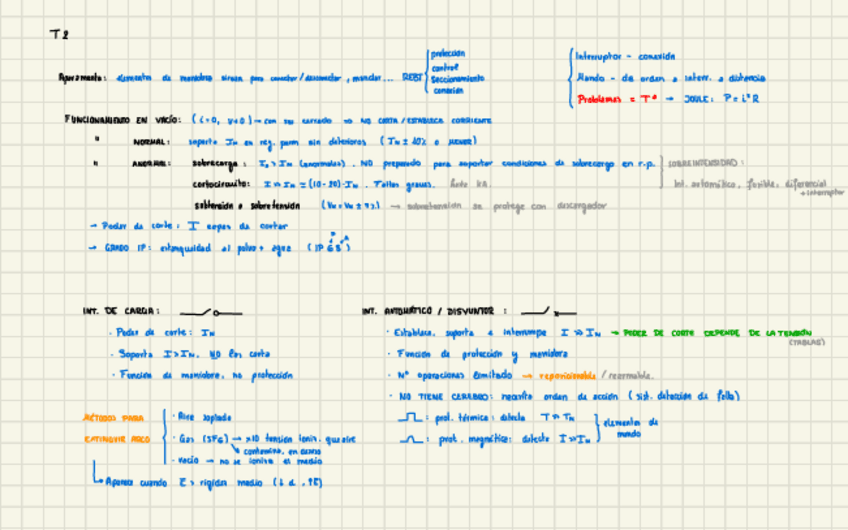 T2
protección
control
seccionamiento
conexión
Aparamenta: elementos de maniobra sirven para conectar/desconectar, mandar... REBT
Interruptor - conexión
Mando - da orden a interr. a distancia
Problemas = Tª → JOULE: P = i²R
FUNCIONAMIENTO EN VACÍO: (i=0, V≠0) → con su cerrado → NO CORTA/ESTABLECE CORRIENTE
" NORMAL: soporta IN en reg. perm sin deterioros (IN ± 10% o MENOR)
" ANORMAL: sobrecarga: I > IN (anormales). NO preparado para soportar condiciones de sobrecarga en r.p.
SOBREINTENSIDAD:
cortocircuito: I >> IN = (10-20)·IN. Fallos graves. kA.
Int. automático, fusible, diferencial
+ interruptor
subtensión o sobretensión (VN = VN ± 7%) → sobretensión se protege con descargador
→ Poder de corte: I capaz de cortar
→ GRADO IP: estanquidad al polvo + agua (IP 68)
INT. DE CARGA:
· Poder de corte: IN
· Soporta I > IN, NO las corta
· Función de maniobra, no protección
INT. AUTOMÁTICO / DISYUNTOR:
· Establece, soporta e interrumpe I >> IN → PODER DE CORTE DEPENDE DE LA TENSIÓN
(TABLAS)
· Función de protección y maniobra
· Nº operaciones limitado → reposicionable / rearmable.
· NO TIENE CEREBRO: necesita orden de acción (sist. detección de fallo)
: prot. térmica: detecta T > TN
: prot. magnética: detecta I >> IN
elementos de
mando
MÉTODOS PARA
EXTINGUIR ARCO
· Aire soplado
· Gas (SF6) → x10 tensión ioniz. que aire
contamina, en desuso
· vacío → no se ioniza el medio
Aparece cuando E > rigidez medio (↓d, ↑E)